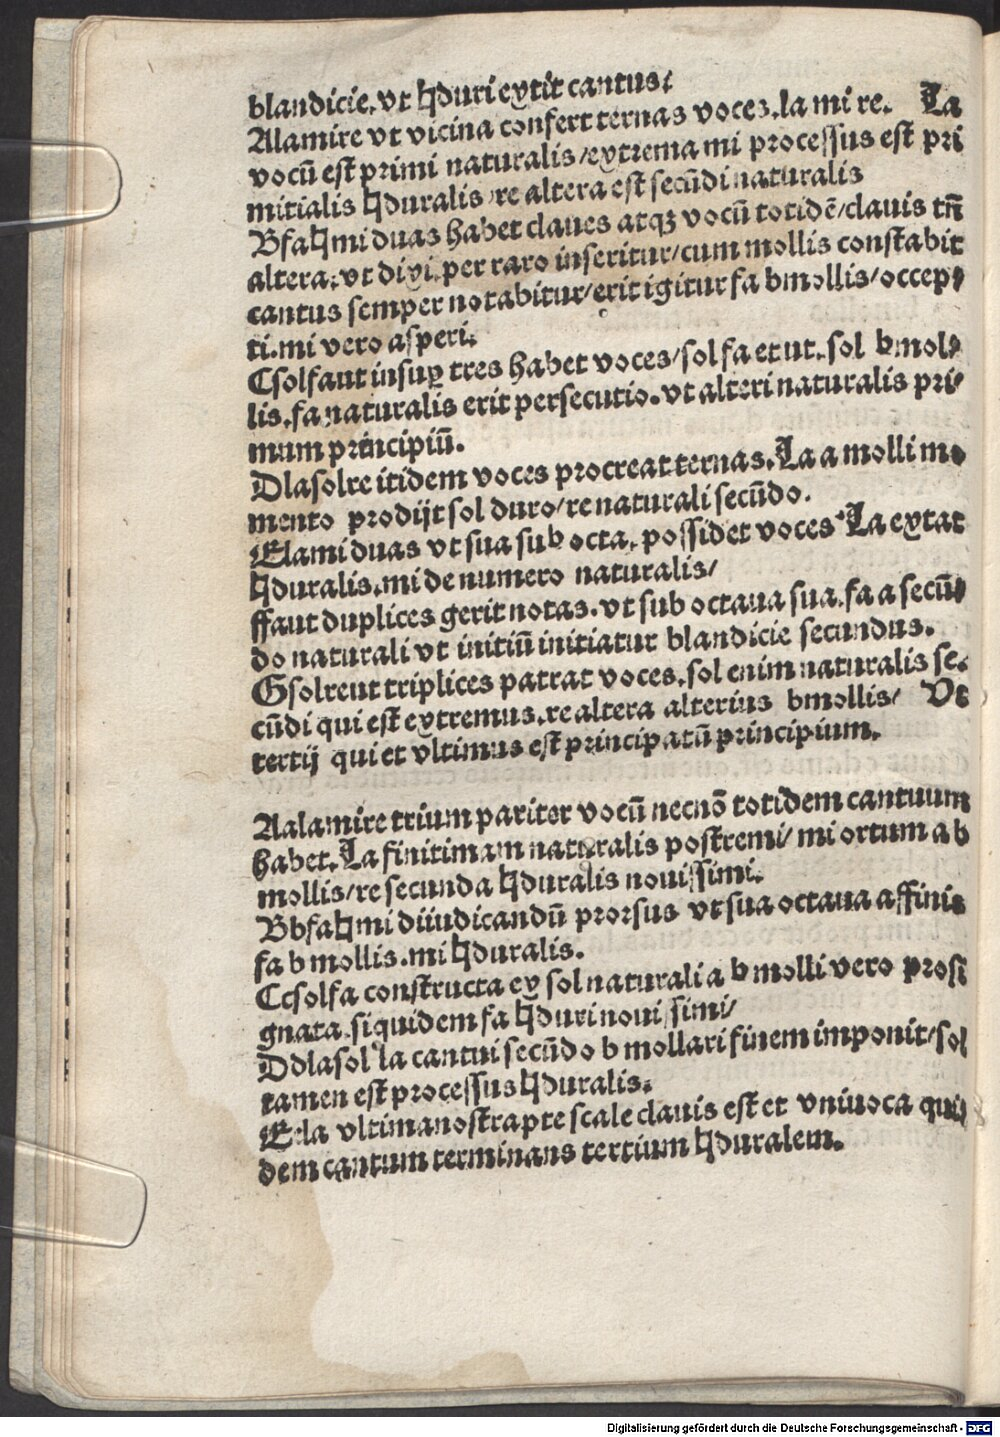 blandicie. vt ♮duri extit cantus.
Alamire vt vicina confert ternas voces. la mi re. La
vocū est primi naturalis/extrema mi processus est pri
mitialis ♮duralis/re altera est secūdi naturalis
Bfa♮mi duas habet claues atqꝫ vocū totidē/clauis tn̄
altera. vt dixi. per raro inseritur/cum mollis constabit
cantus semper notabitur/erit igitur fa bmollis/occep⸗
ti. mi vero asperi.
Csolfaut insuꝑ tres habet voces/sol fa et ut. sol bmol⸗
lis. fa naturalis erit persecutio. vt alteri naturalis pri⸗
mum principiū.
Dlasolre itidem voces procreat ternas. La a molli mo
mento prodijt sol duro/re naturali secūdo.
Elami duas vt sua sub octa. possidet voces La extat
♮duralis. mi de numero naturalis/
ffaut duplices gerit notas. vt sub octaua sua. fa a secū⸗
do naturali vt initiū initiatur blandicie secundus.
Gsolreut triplices patrat voces. sol enim naturalis se⸗
cūdi qui est extremus. re altera alterius bmollis/ Vt
tertij qui et vltimus est principatū principium.
Aalamire trium pariter vocū necnō totidem cantuum
habet. La finitimam naturalis postremi/ mi ortum a b
mollis/re secunda ♮duralis nouissimi.
Bbfa♮mi diiudicandū prorsus vt sua octaua affinis
fa b mollis. mi ♮duralis.
Ccsolfa constructa ex sol naturali a b molli vero prosi
gnata. siquidem fa ♮duri nouissimi/
Ddlasol la cantui secūdo b mollari finem imponit/sol
tamen est processus ♮duralis.
Eela vltima nostrapte scale clauis est et vniuoca qui⸗
dem cantum terminans tertium ♮duralem.
Digitalisierung gefördert durch die Deutsche Forschungsgemeinschaft - DFG